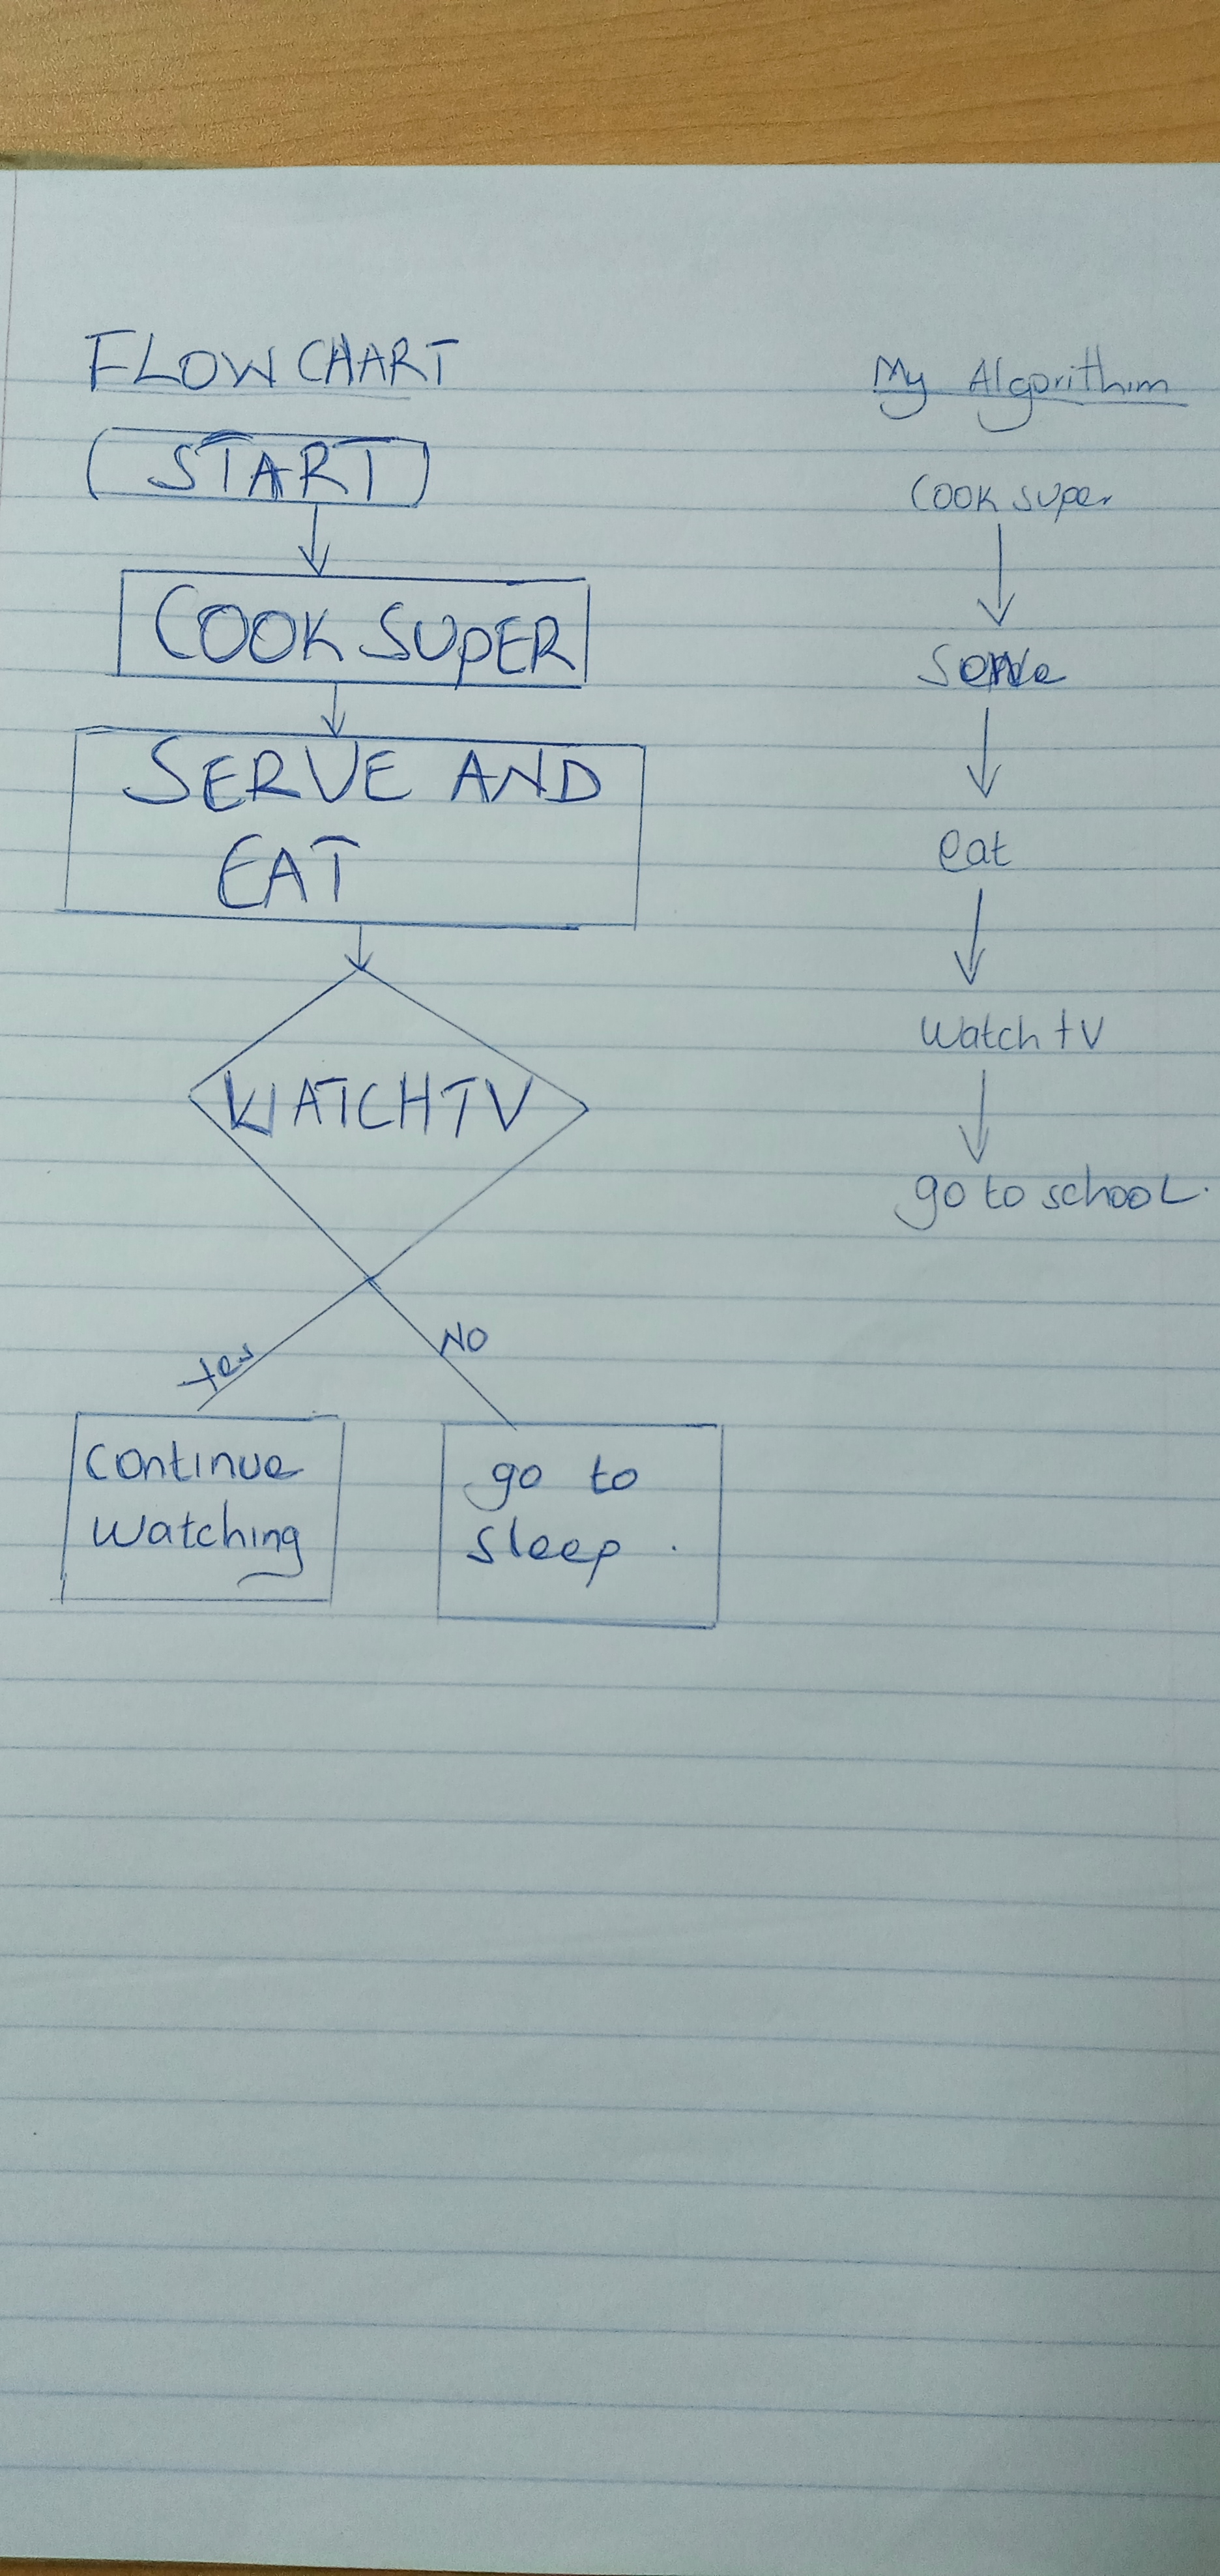 FLOW CHART
START
COOK SUPER
SERVE AND
EAT
WATCH TV
Yes
NO
continue
watching
go to
sleep.
My Algorithim
Cook super
Serve
eat
watch tv
go to school.